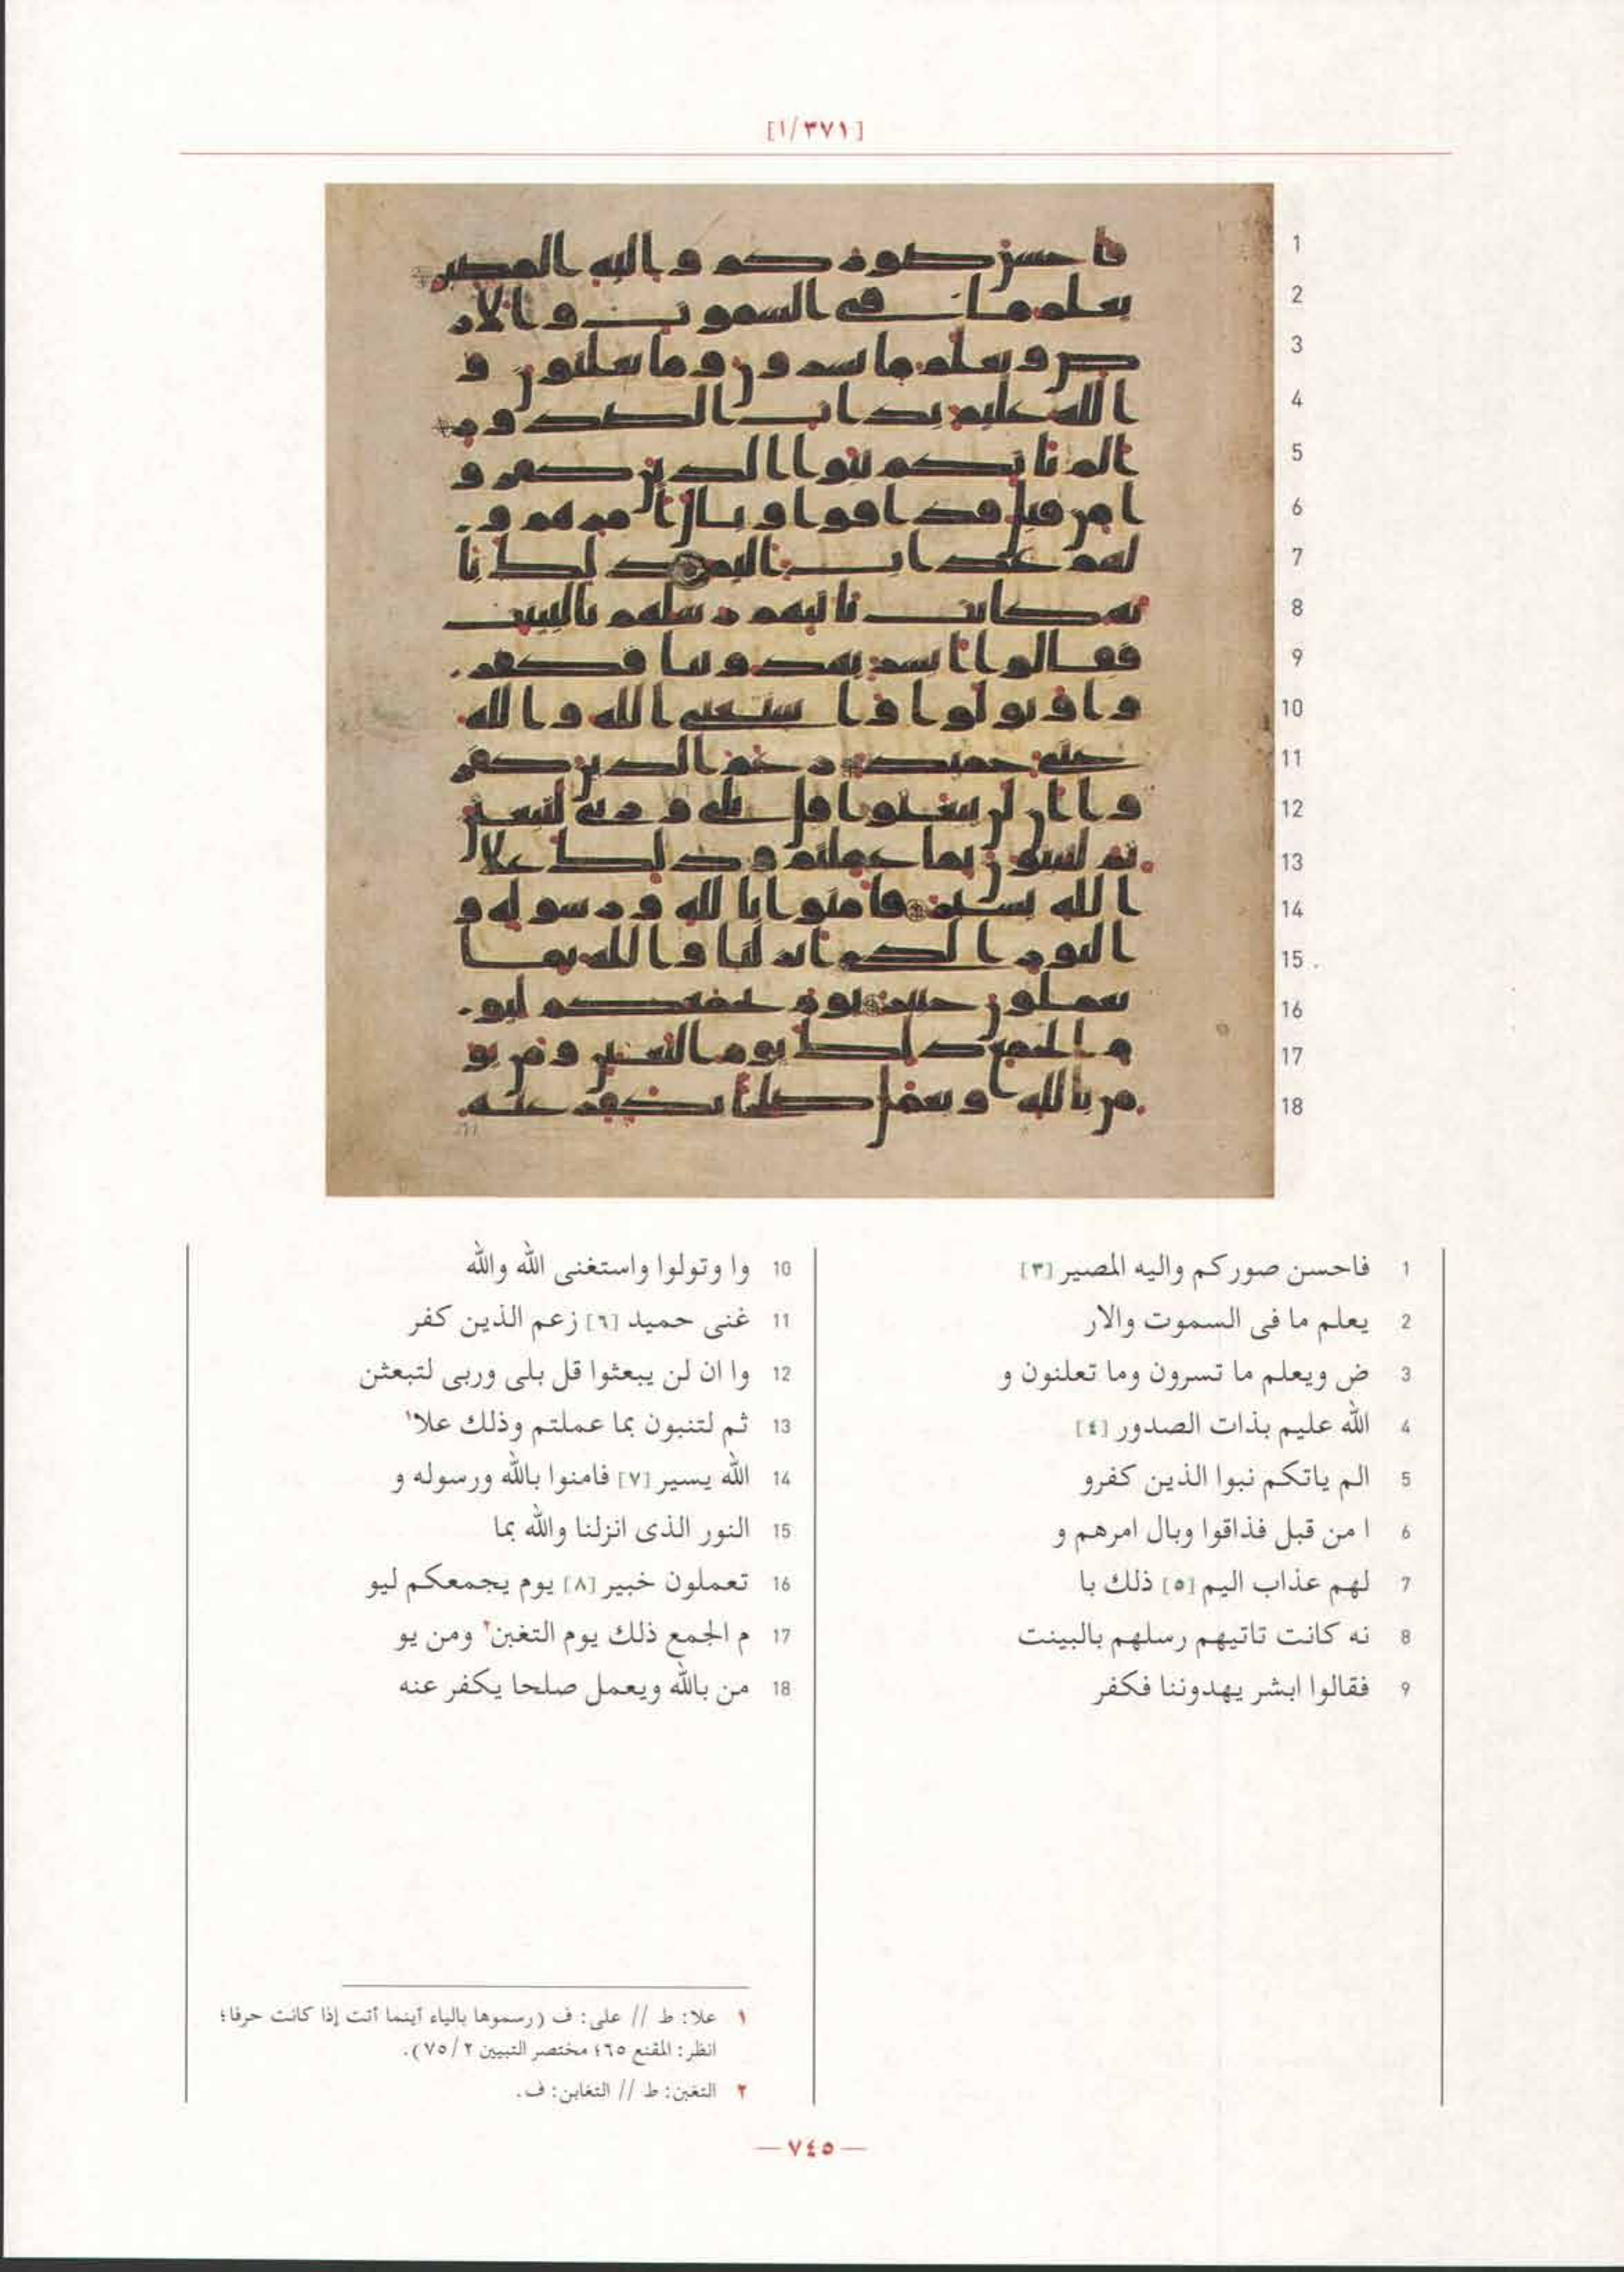 [١/٣٧١]
1 فاحسن صوركم واليه المصير [٣]
2 يعلم ما فى السموت والار
3 ض ويعلم ما تسرون وما تعلنون و
4 الله عليم بذات الصدور [٤]
5 الم ياتكم نبوا الذين كفرو
6 ا من قبل فذاقوا وبال امرهم و
7 لهم عذاب اليم [٥] ذلك با
8 نه كانت تاتيهم رسلهم بالبينت
9 فقالوا ابشر يهدوننا فكفر
10 وا وتولوا واستغنى الله والله
11 غنى حميد [٦] زعم الذين كفر
12 وا ان لن يبعثوا قل بلى وربى لتبعثن
13 ثم لتنبون بما عملتم وذلك علا١
14 الله يسير [٧] فامنوا بالله ورسوله و
15 النور الذى انزلنا والله بما
16 تعملون خبير [٨] يوم يجمعكم ليو
17 م الجمع ذلك يوم التغبن٢ ومن يو
18 من بالله ويعمل صلحا يكفر عنه
١ علا: ط // على: ف (رسموها بالياء أينما أتت إذا كانت حرفا؛
انظر: المقنع ٦٥؛ مختصر التبيين ٢/٧٥).
٢ التغبن: ط // التغابن: ف.
— ٧٤٥ —